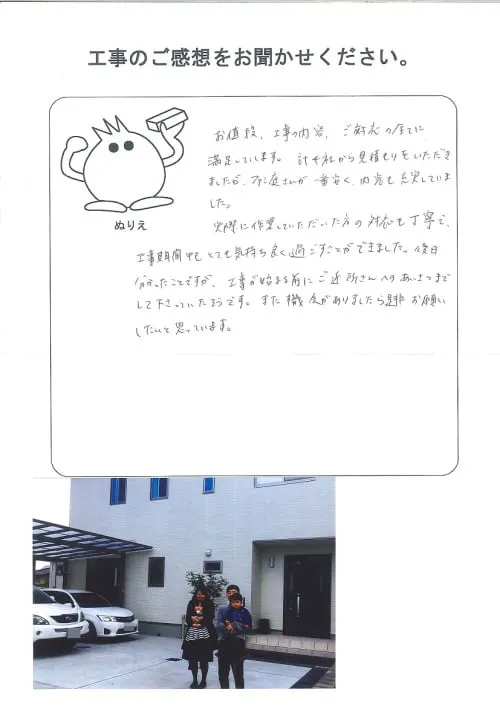 工事のご感想をお聞かせください。
ぬりえ
お値段、工事の内容、ご対応の全てに
満足しています。計4社から見積もりをいただき
ましたが、ファミ庭さんが一番安く、内容も充実していま
した。
実際に作業していただいた方の対応も丁寧で、
工事期間中もとても気持ち良く過ごすことができました。後日
分かったことですが、工事が始まる前にご近所さんへのあいさつまで
して下さっていたようです。また機会がありましたら是非お願い
したいと思っています。